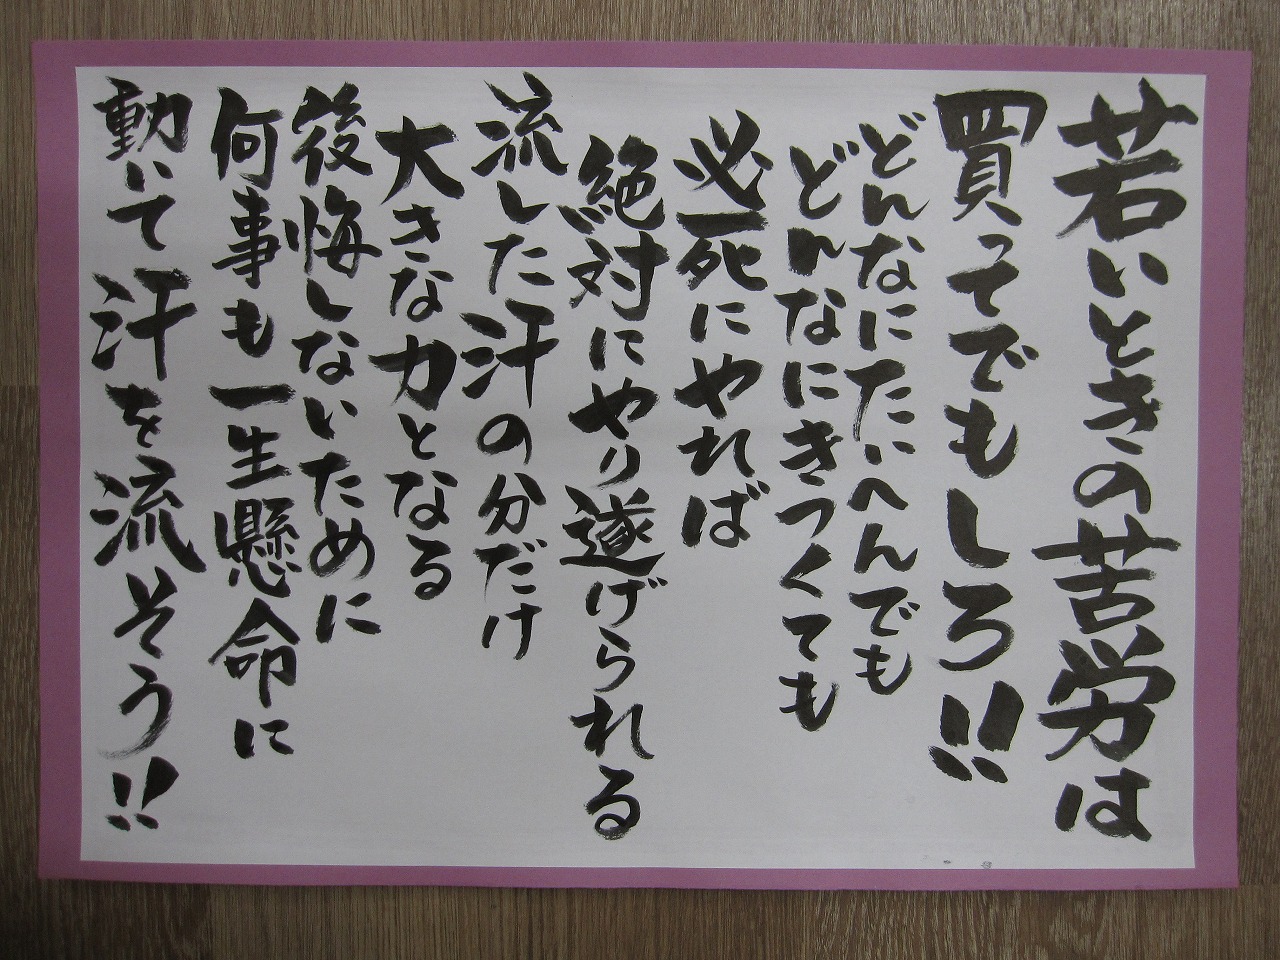 若いときの苦労は
買ってでもしろ!!
どんなにたいへんでも
どんなにきつくても
必死にやれば
絶対にやり遂げられる
流した汗の分だけ
大きな力となる
後悔しないために
何事も一生懸命に
動いて汗を流そう!!